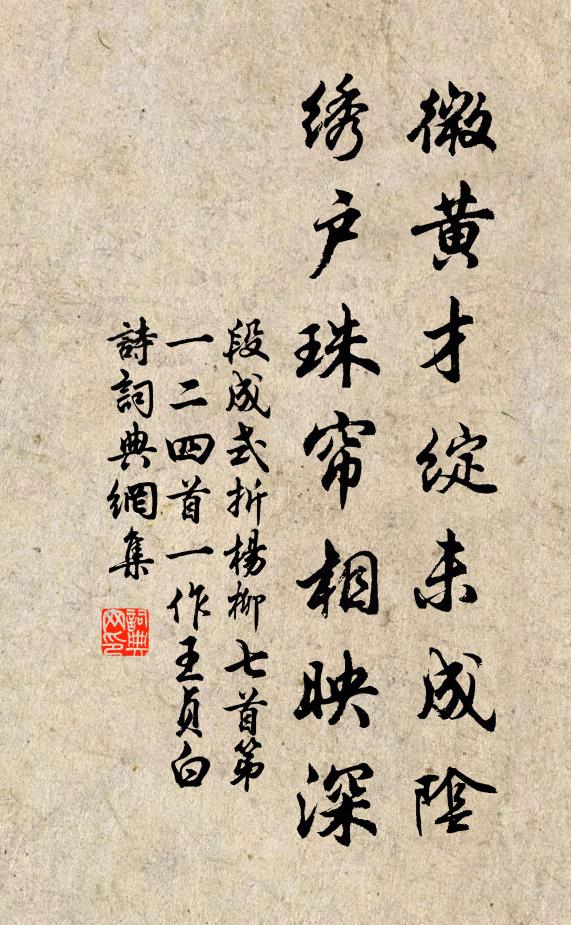 微黄才綻未成陰
绣户珠帘相映深
段成式折楊柳七首第
一二四首一作王貞白
詩詞典網集
詞典
网印